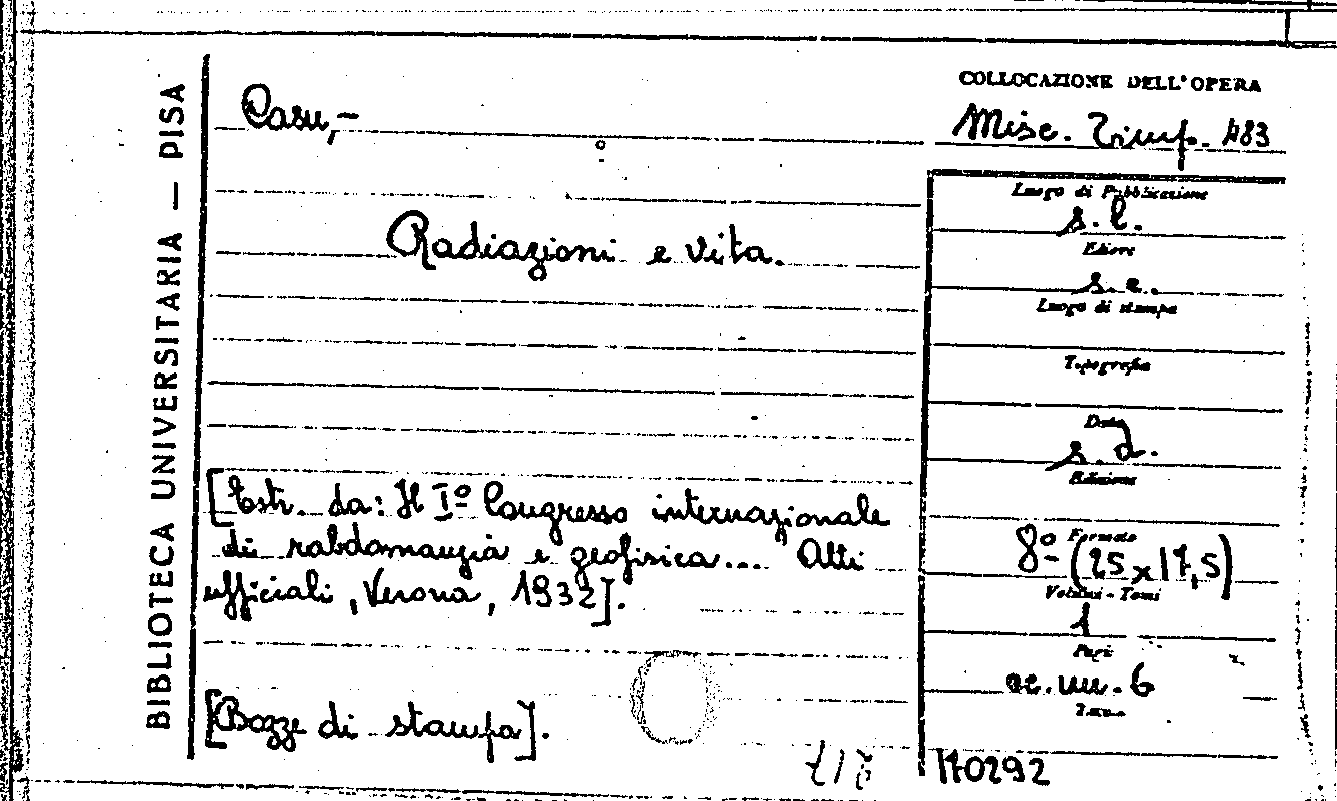 BIBLIOTECA UNIVERSITARIA — PISA
Casu,-
Radiazioni e vita.
[Estr. da: Il Iº Congresso internazionale
di rabdomanzia e geofisica... Atti
ufficiali, Verona, 1932].
[Bozze di stampa].
COLLOCAZIONE DELL'OPERA
Misc. Timp. 483
Luogo di Pubblicazione
s.l.
Editore
s.e.
Luogo di stampa
Tipografia
Data
s.d.
Edizione
Formato
8º (25x17,5)
Volumi - Tomi
1
Pagg.
cc.nn. 6
Tavv.
170292